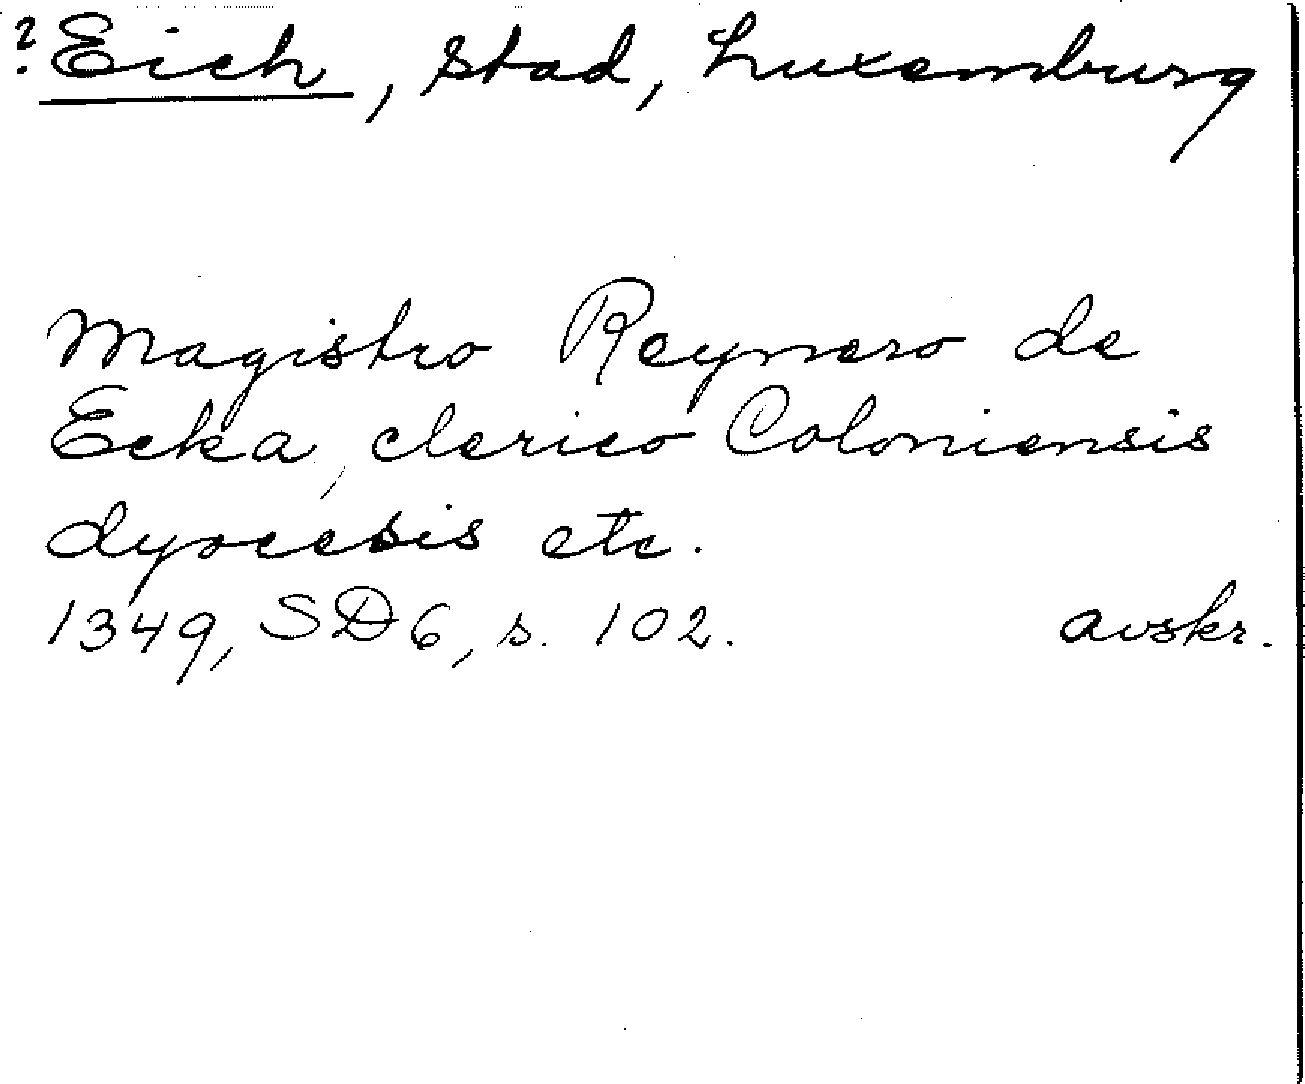 ? Eich, stad, Luxemburg
Magistro Reynero de
Ecka, clerico Coloniensis
dyocesis etc.
1349, SD 6, s. 102. avskr.